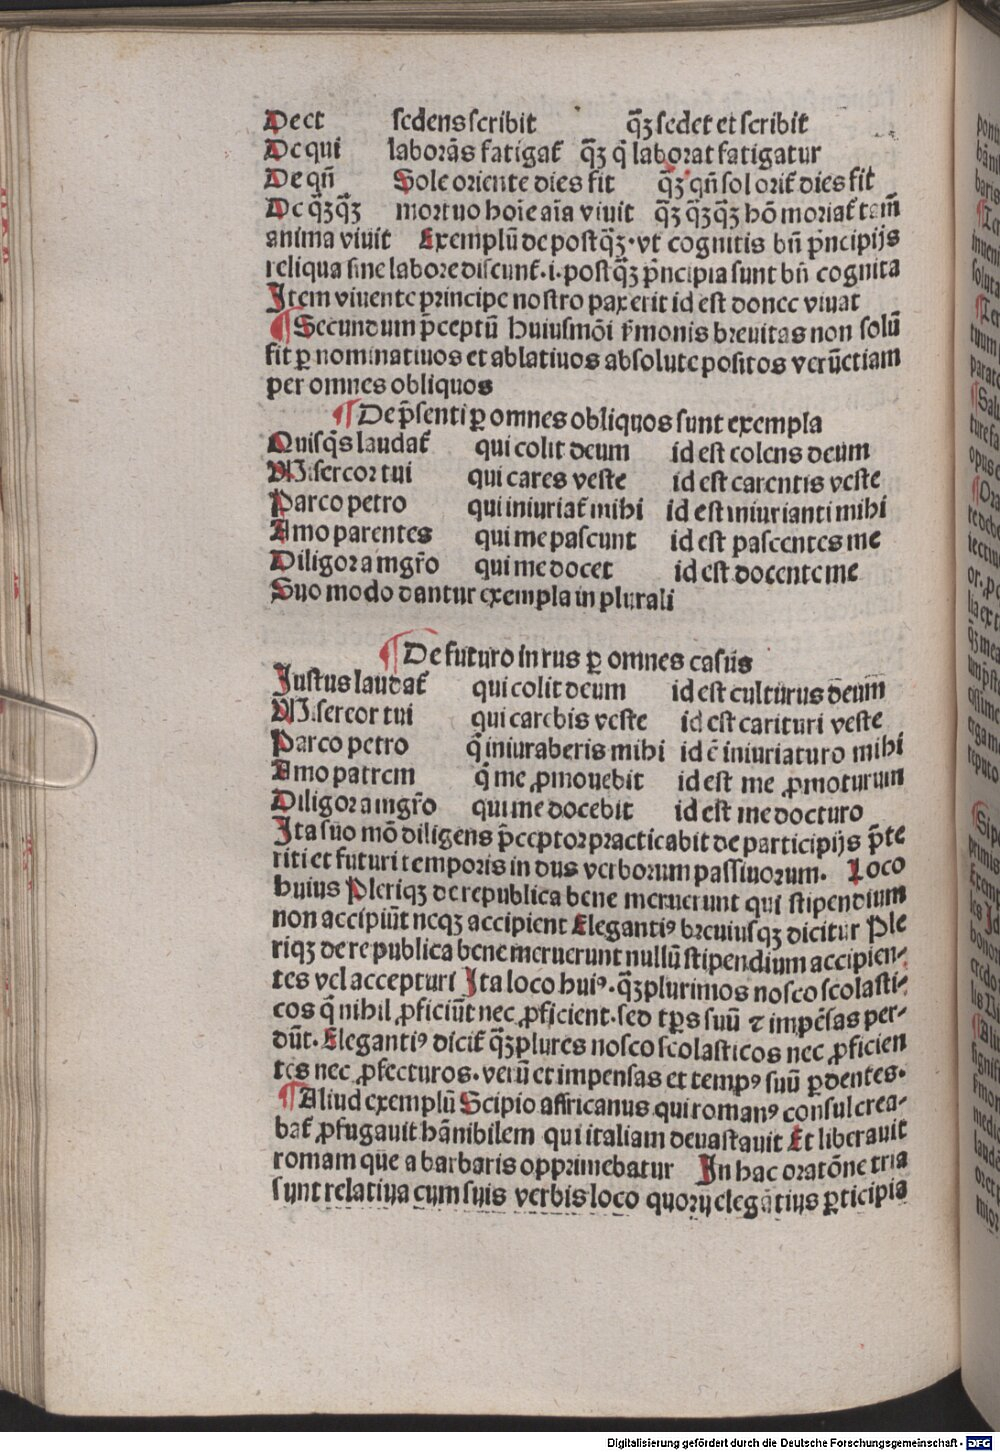 De et sedens scribit q̄ꝫ sedet et scribit
De qui laborās fatigat̄ q̄ꝫ q̄ laborat fatigatur
De qn̄ Sole oriente dies fit q̄ꝫ qn̄ sol orit̄ dies fit
De q̄ꝫq̄ꝫ mortuo hoīe aīa viuit q̄ꝫ q̄ꝫq̄ꝫ hō moriat̄ tam̄
anima viuit Exemplū de postq̄ꝫ·vt cognitis bn̄ p̄ncipijs
reliqua sine labore discunt̄·i·postq̄ꝫ p̄ncipia sunt bn̄ cognita
Item viuente principe nostro pax erit id est donec viuat
¶ Secundum p̄ceptū huiusmōi ẜmonis breuitas non solū
fit ꝑ nominatiuos et ablatiuos absolute positos verūetiam
per omnes obliquos
¶ De p̄senti ꝑ omnes obliquos sunt exempla
Quisq̄s laudat̄ qui colit deum id est colens deum
Misereor tui qui cares veste id est carentis veste
Parco petro qui iniuriat̄ mihi id est iniurianti mihi
Amo parentes qui me pascunt id est pascentes me
Diligor a mgr̄o qui me docet id est docente me
Suo modo dantur exempla in plurali
¶ De futuro in rus ꝑ omnes casus
Iustus laudat̄ qui colit deum id est culturus deum
Misereor tui qui carebis veste id est carituri veste
Parco petro q̄ iniuraberis mihi id ē iniuriaturo mihi
Amo patrem q̄ me ꝓmouebit id est me ꝓmoturum
Diligor a mgr̄o qui me docebit id est me docturo
Ita suo mō diligens p̄ceptor practicabit de participijs p̄te
riti et futuri temporis in dus verborum passiuorum· Loco
huius Pleriqꝫ de republica bene meruerunt qui stipendium
non accipiūt neqꝫ accipient Elegantiꝰ breuiusqꝫ dicitur Ple
riqꝫ de re publica bene meruerunt nullū stipendium accipien-
tes vel accepturi Ita loco huiꝰ·q̄ꝫplurimos nosco scolasti-
cos q̄ nihil ꝓficiūt nec ꝓficient·sed tp̄s suū ⁊ impēsas per-
dūt· Elegantiꝰ dicit̄ q̄ꝫplures nosco scolasticos nec ꝓficien
tes nec ꝓfecturos·verū et impensas et tempꝰ suū ꝑdentes·
¶ Aliud exemplū Scipio affricanus qui romanꝰ consul crea-
bat̄ ꝓfugauit hānibilem qui italiam deuastauit Et liberauit
romam que a barbaris opprimebatur In hac oratōne tria
sunt relatiua cum suis verbis loco quorū elegātius ꝑticipia
Digitalisierung gefördert durch die Deutsche Forschungsgemeinschaft - DFG